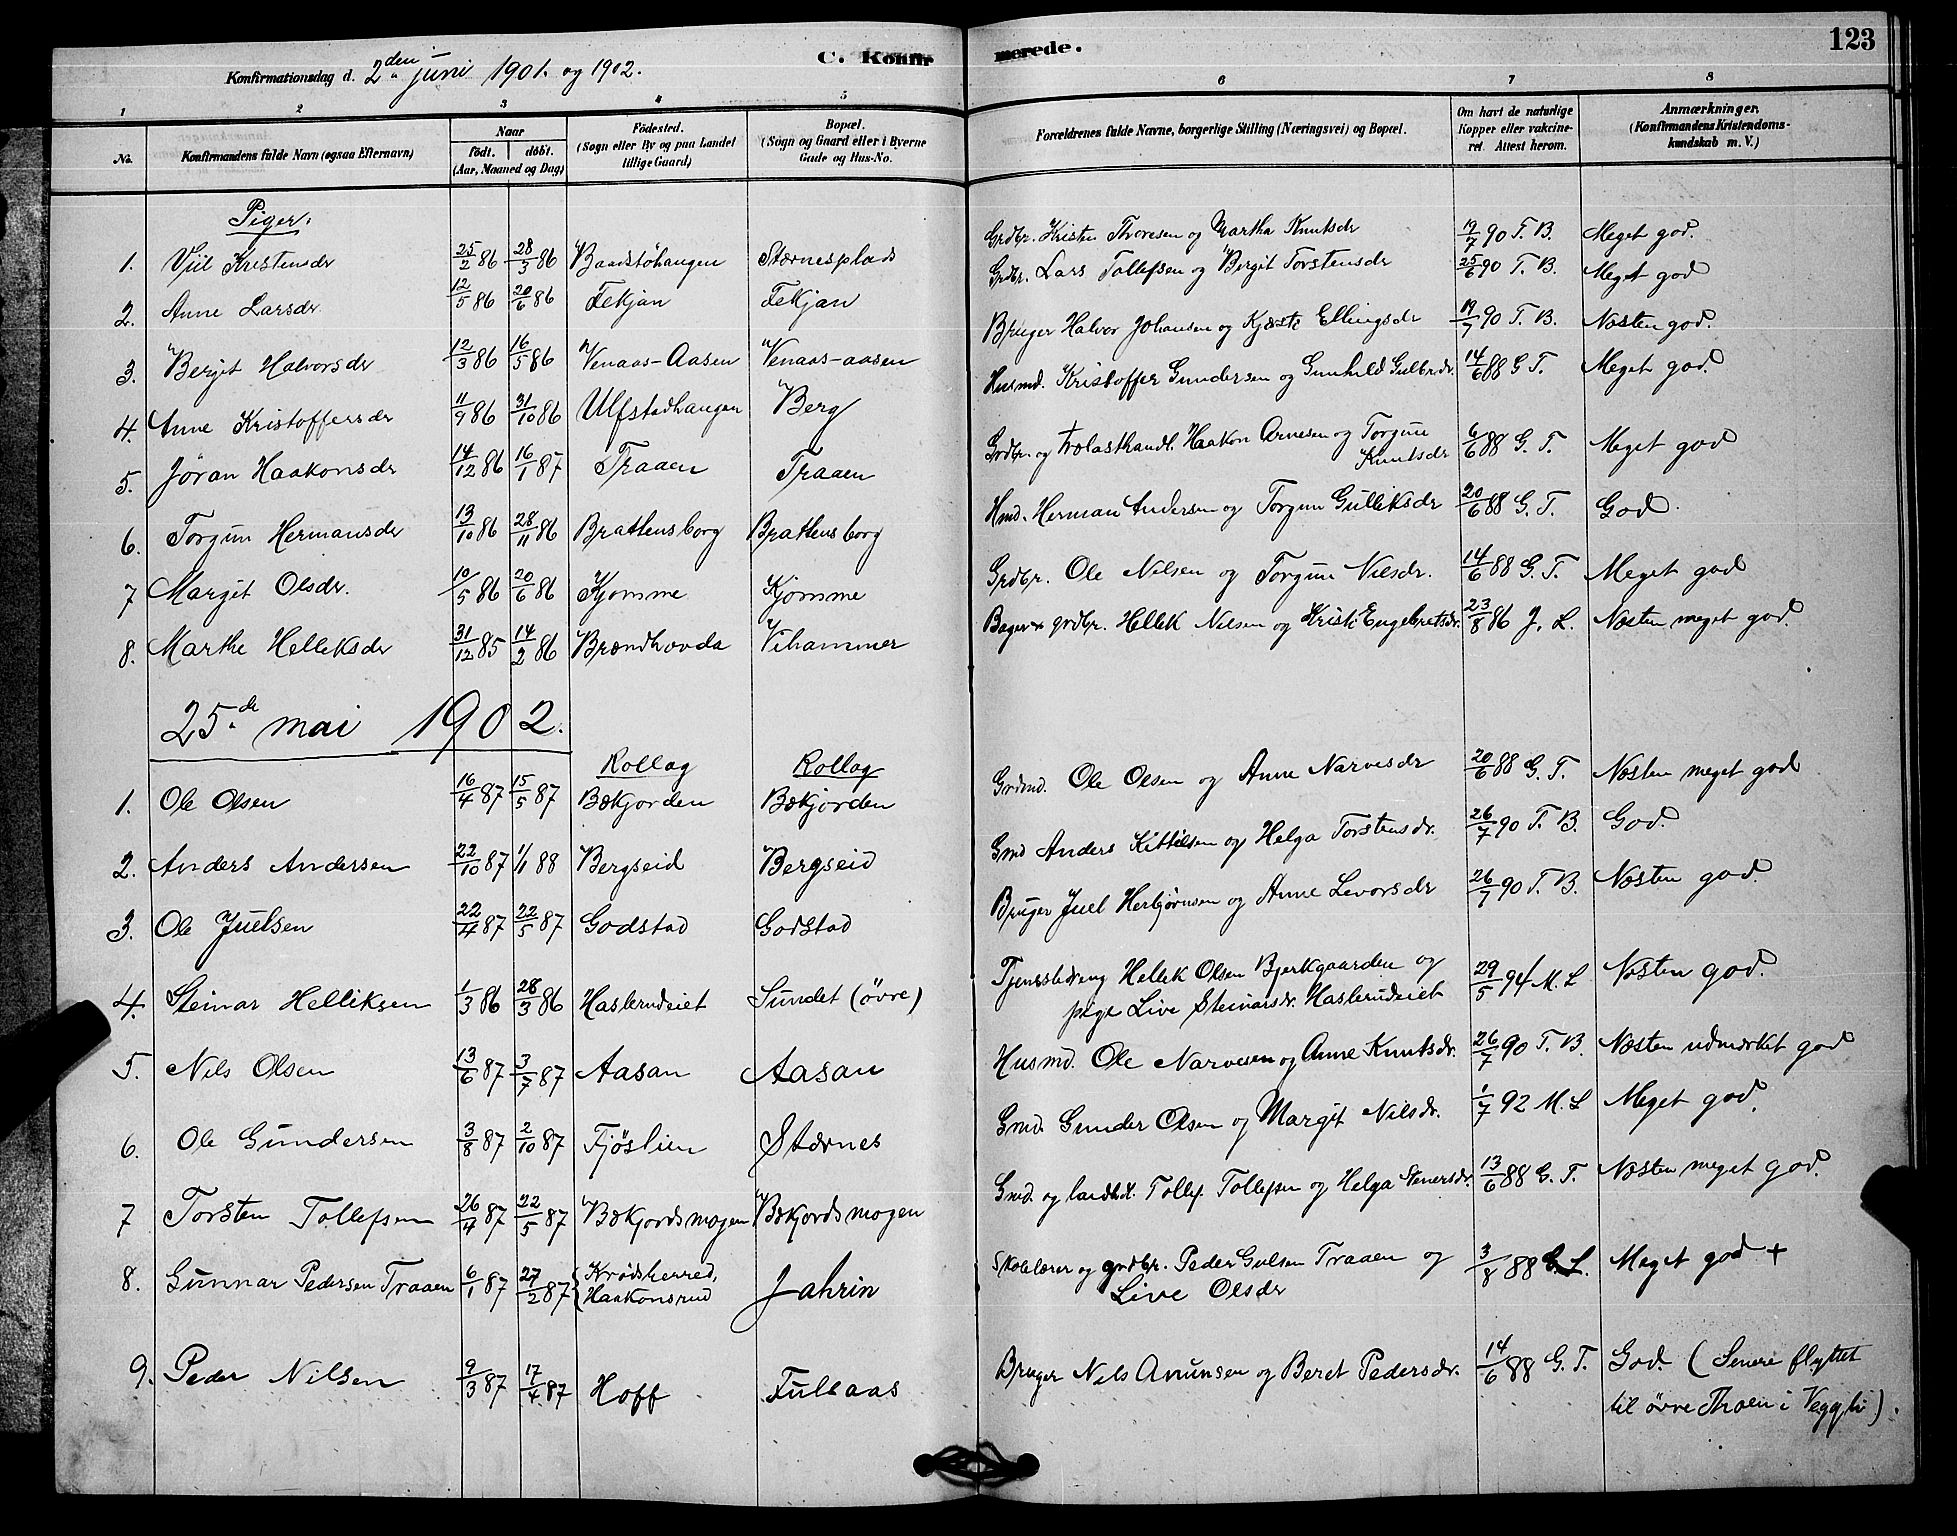 123
C. Konfirmerede.
Konfirmationsdag d. 2den juni 1901. og 1902.
1 2 3 4 5 6 7 8
No. Konfirmandens fulde Navn (ogsaa Efternavn) Naar født. døbt. (Aar, Maaned og Dag) Fødested. (Sogn eller By og paa Landet tillige Gaard) Bopæl. (Sogn og Gaard eller i Byerne Gade og Hus-No. Forældrenes fulde Navne, borgerlige Stilling (Næringsvei) og Bopæl. Om havt de naturlige Kopper eller vakcineret. Attest herom. Anmærkninger. (Konfirmandens Kristendomskundskab m. V.)
Piger.
1. Viil Kristensdr 25/2 86 28/3 86 Baadstøhaugen Stærnesplads Grdbr. Kristen Thoresen og Martha Knutsdr 19/7 90 T. B. Meget god.
2. Anne Larsdr. 12/5 86 20/6 86 Fekjan Fekjan Grdbr. Lars Tollefsen og Bergit Torstensdr 25/6 90 T. B. Meget god
3. Berget Halvorsdr 12/3 86 16/5 86 Venaas-Aasen Venaas-aasen Bruger Halvor Johansen og Kjersti Ellingsdr 19/7 90 T. B. Næsten god.
4. Anne Kristoffersdr 11/9 86 31/10 86 Ulfstadhaugen Berg Husmd. Kristoffer Gundersen og Gunhild Gulbr.dr. 14/6 88 G T. Meget god.
5. Jøran Haakonsdr 14/12 86 16/1 87 Traaen Traaen Grdbr. og trælasthandl. Haakon Arnesen og Torgun Knutsdr 6/6 88 G. T. Meget god
6. Torgun Hermansdr 13/10 86 28/11 86 Brattensborg Brattensborg Hmd. Herman Andersen og Torgun Gulliksdr 20/6 88 G. T. God.
7 Margit Olsdr. 10/5 86 20/6 86 Kjomme Kjomme Grdbr. Ole Nilsen og Torgun Nilsdr. 14/6 88 G. T. Meget god
8. Marthe Helleksdr 31/12 85 14/2 86 Brændhovda Vihammer Bager & grdbr. Hellek Nilsen og Kristi Engebretsdr. 23/8 86 J. L. Næsten meget god.
25.de mai 1902.
Rollag Rollag
1. Ole Olsen 16/4 87 15/5 87 Bækjorden Bækjorden Grdmd. Ole Olsen og Anne Narvesdr 20/6 88 G. T. Næsten meget god
2. Anders Andersen 22/10 87 1/1 88 Bergseid Bergseid Gmd Anders Kittilsen og Helga Torstensdr. 26/7 90 T. B. God.
3. Ole Juelsen 22/4 87 22/5 87 Godstad Godstad Bruger Juel Herbjørnsen og Anne Levorsdr 26/7 90 T. B. Næsten god.
4. Steinar Helliksen 1/3 86 28/3 86 Haslerudeiet Sundet (øvre) Tjenestedreng Hellek Olsen Bjerkgaarden og pige Live Steinarsdr. Haslerudeiet 29/5 94 M. L Næsten god.
5. Nils Olsen 13/6 87 3/7 87 Aasan Aasan Husmd. Ole Narvesen og Anne Knutsdr. 26/7 90 T. B. Næsten udmærket god
6. Ole Gundersen 3/8 87 2/10 87 Fjøslien Stærnes Gmd. Gunder Olsen og Margit Nilsdr. 1/7 92 M. L Meget god.
7 Torsten Tollefsen 26/4 87 22/5 87 Bækjordsmogen Bækjordsmogen Gmd. og landhd. Tollef Tollefsen og Helga Stenersdr. 13/6 88 G. T. Næsten meget god.
8. Gunnar Pedersen Traaen 6/1 87 27/2 87 Krødsherred, Haakonsrud Jahrin Skolelærer og grdbr. Peder Gulsen Traaen og Live Olsdr 3/8 88 L. Meget god +
9. Peder Nilsen 9/3 87 17/4 87 Hoff Fullaas Bruger Nels Anunsen og Beret Pedersdr. 14/6 88 G. T. God. (Senere flyttet til øvre Thoen i Veggli).